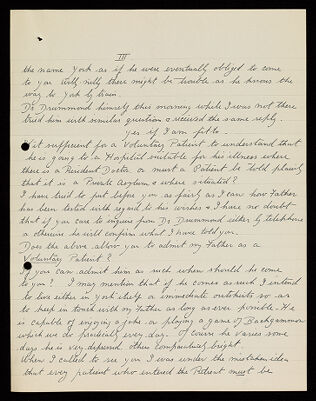 III
the name York as if he were eventually obliged to come
to you willy nilly there might be trouble as he knows the
way to York by train.
Dr Drummond himself this morning while I was not there
tried him with similar question & received the same reply.
yes if I am fit to.
Is it sufficient for a Voluntary Patient to understand that
he is going to a Hospital suitable for his illness where
there is a Resident Doctor or must a Patient be told plainly
that it is a Private Asylum & where situated?
I have tried to put before you as fairly as I can how Father
has been tested with regard to his wishes & I have no doubt
that if you care to inquire from Dr Drummond either by telephone
or otherwise he will confirm what I have told you.
Does the above allow you to admit my Father as a
Voluntary Patient?
If you can admit him as such when should he come
to you? I may mention that if he comes as such I intend
to live either in York itself or immediate outskirts so as
to keep in touch with my Father as long as ever possible. He
is capable of enjoying a joke or playing a game of Backgammon
which we do practically every day. Of course he varies some
days he is very depressed others comparatively bright.
When I called to see you I was under the mistaken idea
that every patient who entered the Retreat must be